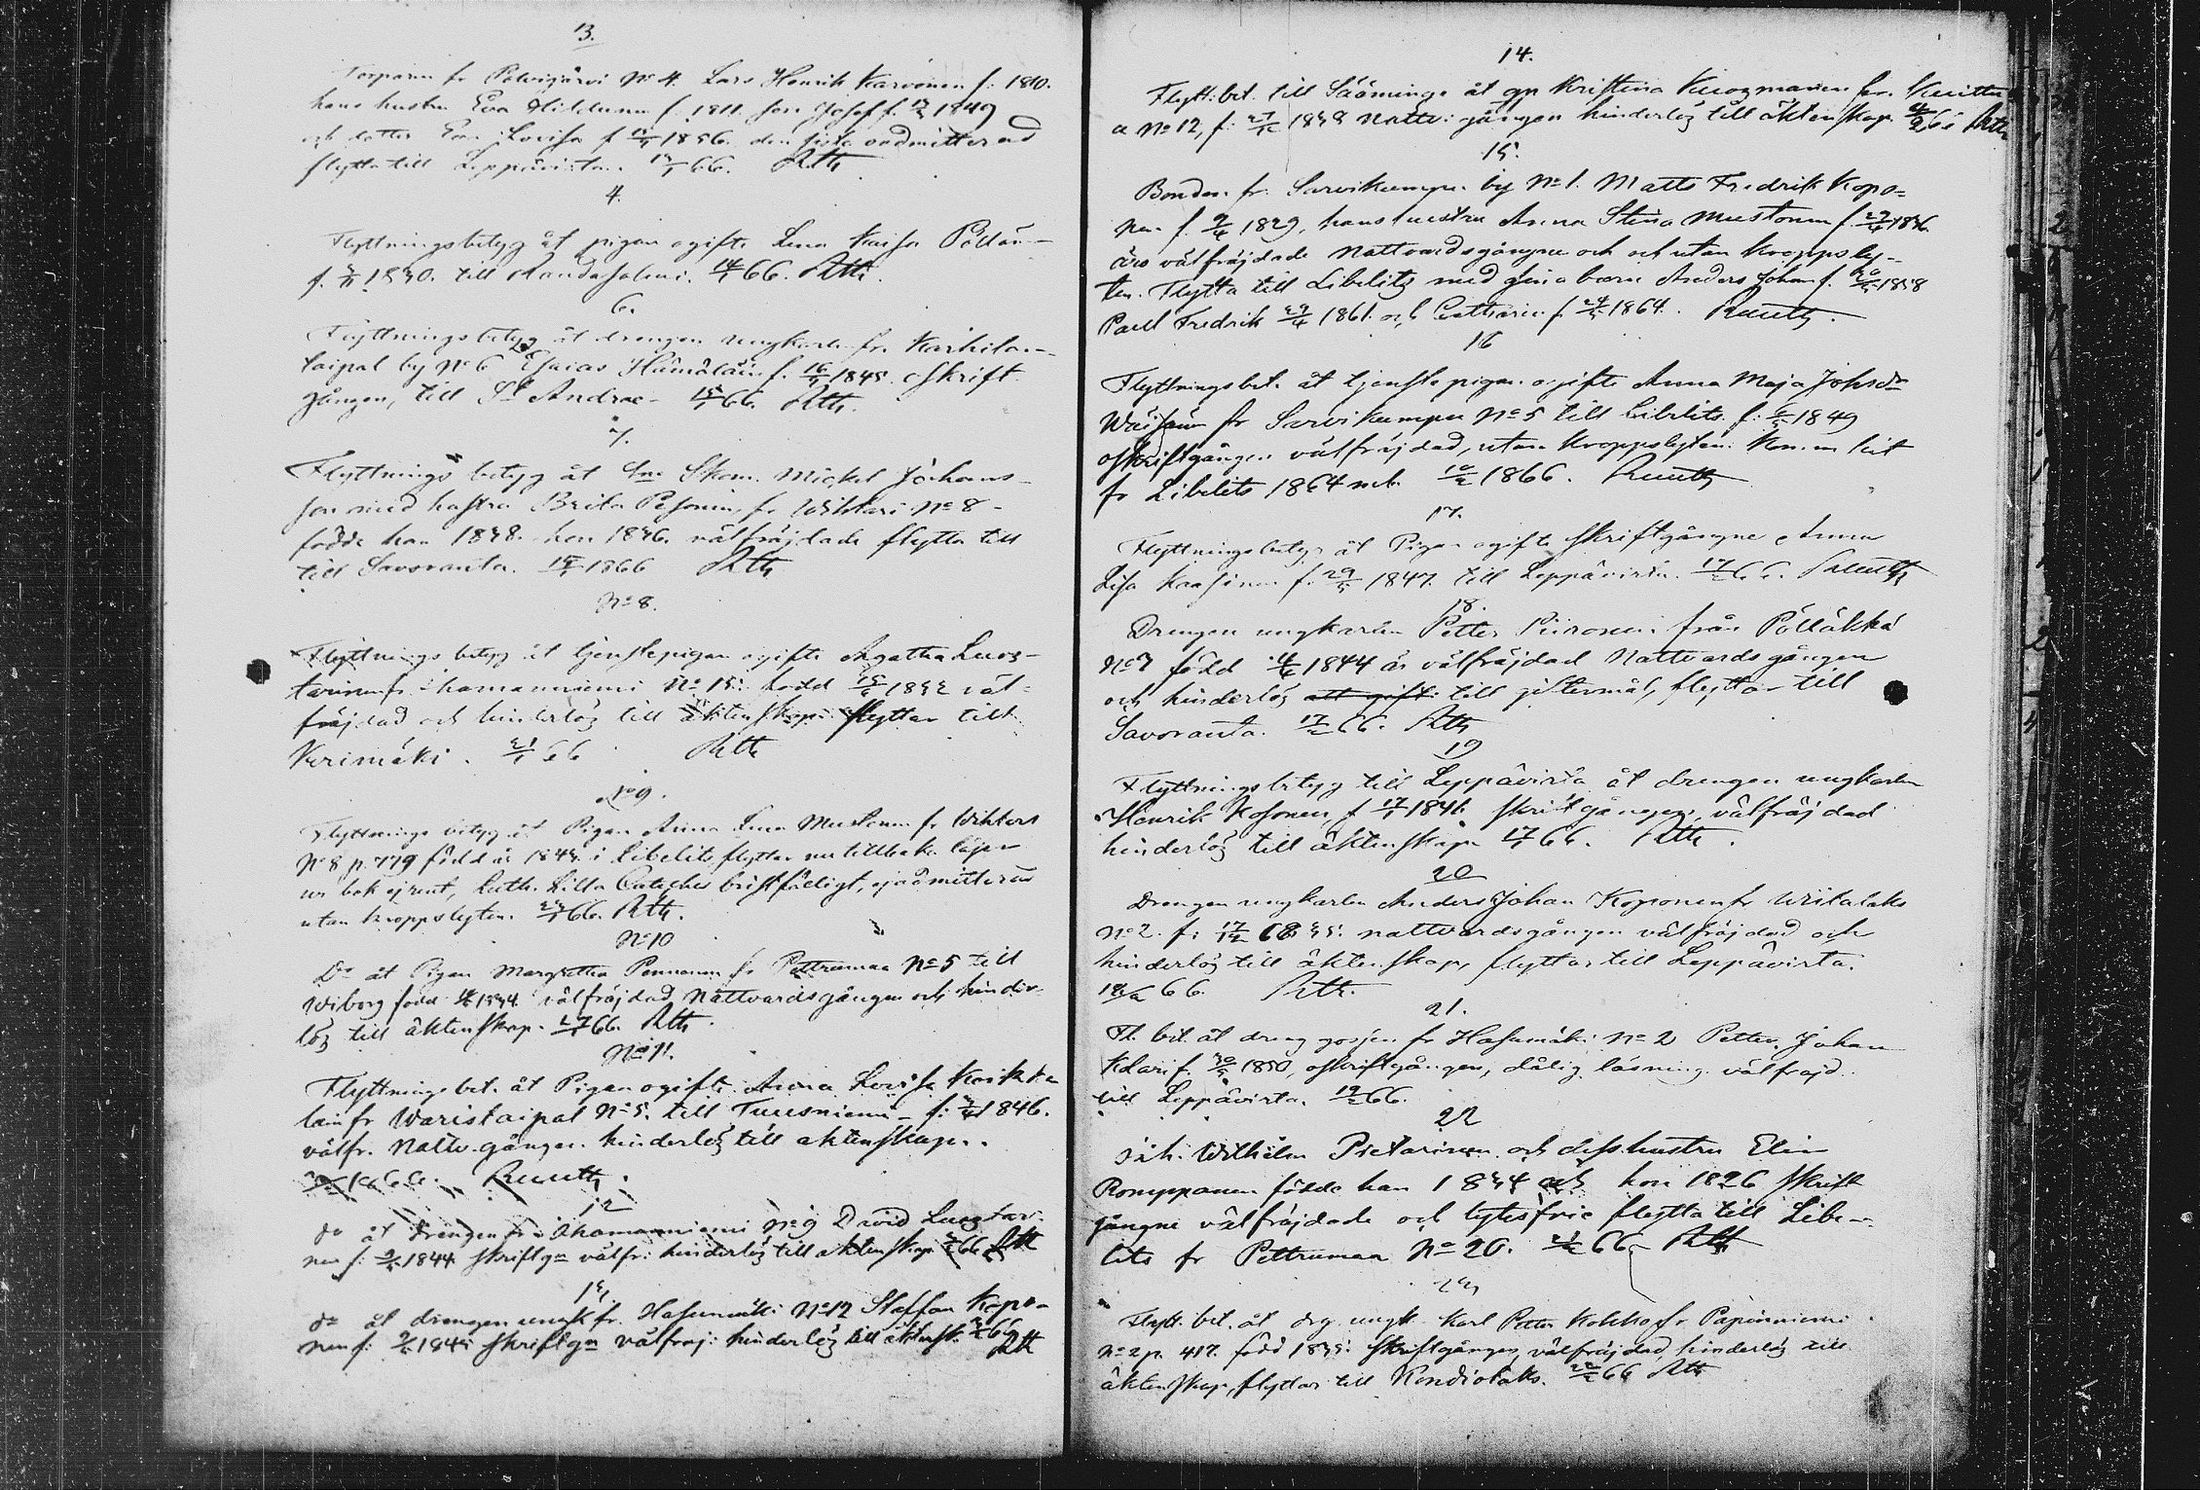 13.
Torparen fr Polvijärvi No 4. Lars Henrik Karvonen f. 1810.
hans hustru Eva Hildunen f. 1811. son Josef f. 1849
och dotter Eva Lovisa f 1856. den sista oadmitterad
flytta till Leppävirta. 66. Rth
4.
Flyttningsbetyg åt pigan ogifta Lena Kaisa Pöllän-
f. 1840. till Randasalmi. 14/1 66. Rth.
6.
Flyttningsbetyg åt drengen ungkarlen fr. Karhilan-
taipal by No 6 Esaias Hämäläin f. 16/1 1845. Skrift
gången, till St Andrae- 15/1 66. Rth.
7.
Flyttnings betyg åt Skom. Mickel Johans-
son med hustru Brita Pesonin, fr Wihtari No 8-
födde han 1838. hon 1836. välfräjdade flytta till
till Savoranta. 15/1 1866 Rth
No 8.
Flyttnings betyg åt tjenstepigan ogifta Agatha Luos-
tarinen fr. Ihamaniemi No 15. född 1842 väl-
fräjdad och hinderlös till äktenskap flyttar till
Kerimäki. 21/1 66 Rth
No 9.
Flyttnings betyg åt Pigan Anna Lena Mustonen fr Wihtari
No 8, p. 779 född år 1843. i Libelits flyttar nu tillbaka läser
ur bok ej rent, Luth. Lilla Cateches bristfälligt, ej admitterad
utan kroppslyten. 66. Rth.
No 10
Do åt Pigan Margretha Pennanen fr Pettrumaa No 5 till
Wiborg född 1844. välfräjdad Nattvardsgången och hinder-
lös till äktenskap. 27/1 66. Rth.
No 11.
Flyttningsbet. åt Pigan ogifta Anna Lovisa Kosikka
lain fr Waristaipal No 5. till Tuusniemi- f. 1846.
välfr. Nattv. gången. hinderlös till aktenskap.
1866. Ruuth.
12
do åt Drengen fr Ihamaniemi No 9 David Luostari-
nen f. 1844 skriftgn välfr: hinderlös till aktenskap 66 Rth
13.
do åt drengen ungk fr. Hasumäki No 12 Staffan Kopo-
nen f. 1845 skriftgn välfräj: hinderlös till äktensk. 66 Rth
14.
Flytt. bet. till Sääminge åt gp Kristina Kuosmanen fr. Kuittu
a No 12, f. 27/12 1838 nattv: gången hinderlös till äktenskap 66 Rth
15.
Bonden fr. Sarvikumpu by No 1. Matts Fredrik Kopo=
nen f. 9/4 1829, hans hustru Anna Stina Mustonen f. 1836
äro välfräjdade Nattvardsgångne och och utan kroppsly-
ten. Flytta till Libelitz med sina barn Anders Johan f. 1858
Paul Fredrik 29/4 1861. och Catharina f. 24/5 1864. Ruuth.
16
Flyttningsbet. åt tjenstepigan ogifta Anna Maja Johsdr
Wäisäinn fr Sarvikumpu No 5 till Libelits. f. 1849
oskriftgången välfräjdad, utan kroppslyten. Kommen hit
fr Libelits 1864 m.b. 1866. Ruuth
17.
Flyttningsbetyg åt Pigan ogifta skriftgångne Anna
Lisa Kaasinen f. 29/5 1847. till Leppävirta. 17/2 66. Ruuth
18.
Drengen ungkarlen Petter Piironen från Pölläkkä
No 7 född 1844 är välfräjdad Nattvardsgången
och hinderlös att gift till giftermål, flyttar till
Savoranta. 17/2 66. Rth
19
Flyttningsbetyg till Leppävirta åt drengen ungkarlen
Henrik Kosonen f 17/1 1841. skriftgången, välfräjdad
hinderlös till äktenskap 66. Rth.
20
Drengen ungkarlen Anders Johan Koponen fr Wiilalaks
No 2. f: 17/12 nattvardsgången välfräjdad och
hinderlös till äktenskap, flyttar till Leppävirta.
18/2 66. Rth.
21.
Fl. bet. åt dreng gossen fr Hasumäki No 2 Petter Johan
Klari f. 1850, oskriftgången, dålig läsning. välfräjd.
till Leppävirta. 19/2 66.
22
Joh. Wilhelm Pietarinen och dess hustru Elin
Romppanen födde han 1844 och hon 1826 skrift
gångne välfräjdade och lytesfrie flytta till Libe-
lits fr Pettrumaa No 20. 66 Rth
23
Flytt. bet. åt drg ungk. Karl Petter Kokko fr Papinniemi
No 2 p. 417. född 1835. skriftgången, välfräjdad, hinderlös till
äktenskap, flyttar till Kondiolaks. 22/2 66 Rth